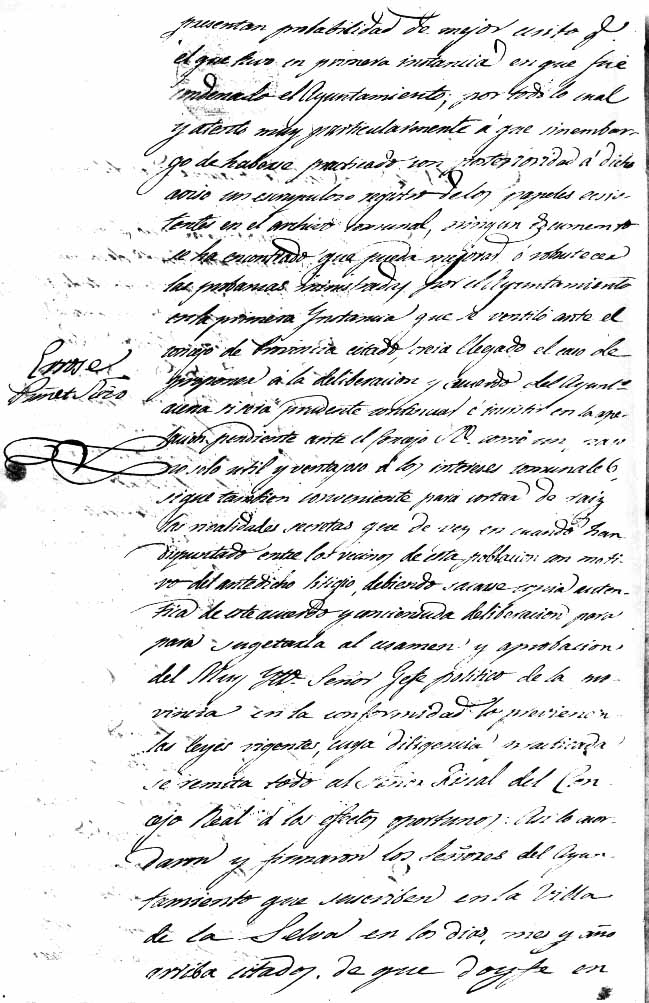 presentan probabilidad de mejor exito q.
el que tuvo en primera instancia en que fue
condenado el Ayuntamiento, por todo lo cual
y atento muy particularmente á que sinembar-
go de haberse practicado con posterioridad á dicho
aviso un escrupuloso registro de los papeles ecsis-
tentes en el archivo comunal, ningun documento
se ha encontrado que pueda mejorar ó robustecer
las probanzas ministradas por el Ayuntamiento
en la primera Instancia que se ventiló ante el
consejo de Provincia citado, creia llegado el caso de
proponer á la deliberacion y acuerdo del Ayunt.º
acerca si seria prudente continuar é insistir en la ape-
lacion pendiente ante el Consejo Rl. como un
solo util y ventajoso á los intereses comunales,
si que tambien conveniente para cortar de raiz
las rivalidades secretas que de vez en cuando han
dispuntado entre los vecinos de esta poblacion con moti-
vo del antedicho litigio, debiendo sacarse copia auten-
tica de este acuerdo y concienzuda deliberacion para
para sugetarla al ecsamen y aprobacion
del Muy Ytre. Señor Gefe politico de la pro-
vincia en la conformidad lo previenen
las leyes vigentes, cuya diligencia practicada
se remita todo al Señor Fiscal del Con-
sejo Real á los efectos oportunos. Asi lo acor-
daron y firmaron los Señores del Ayun-
tamiento que suscriben en la Villa
de la Selva en los dias, mes y año
arriba citados, de que doy fe en
Srio